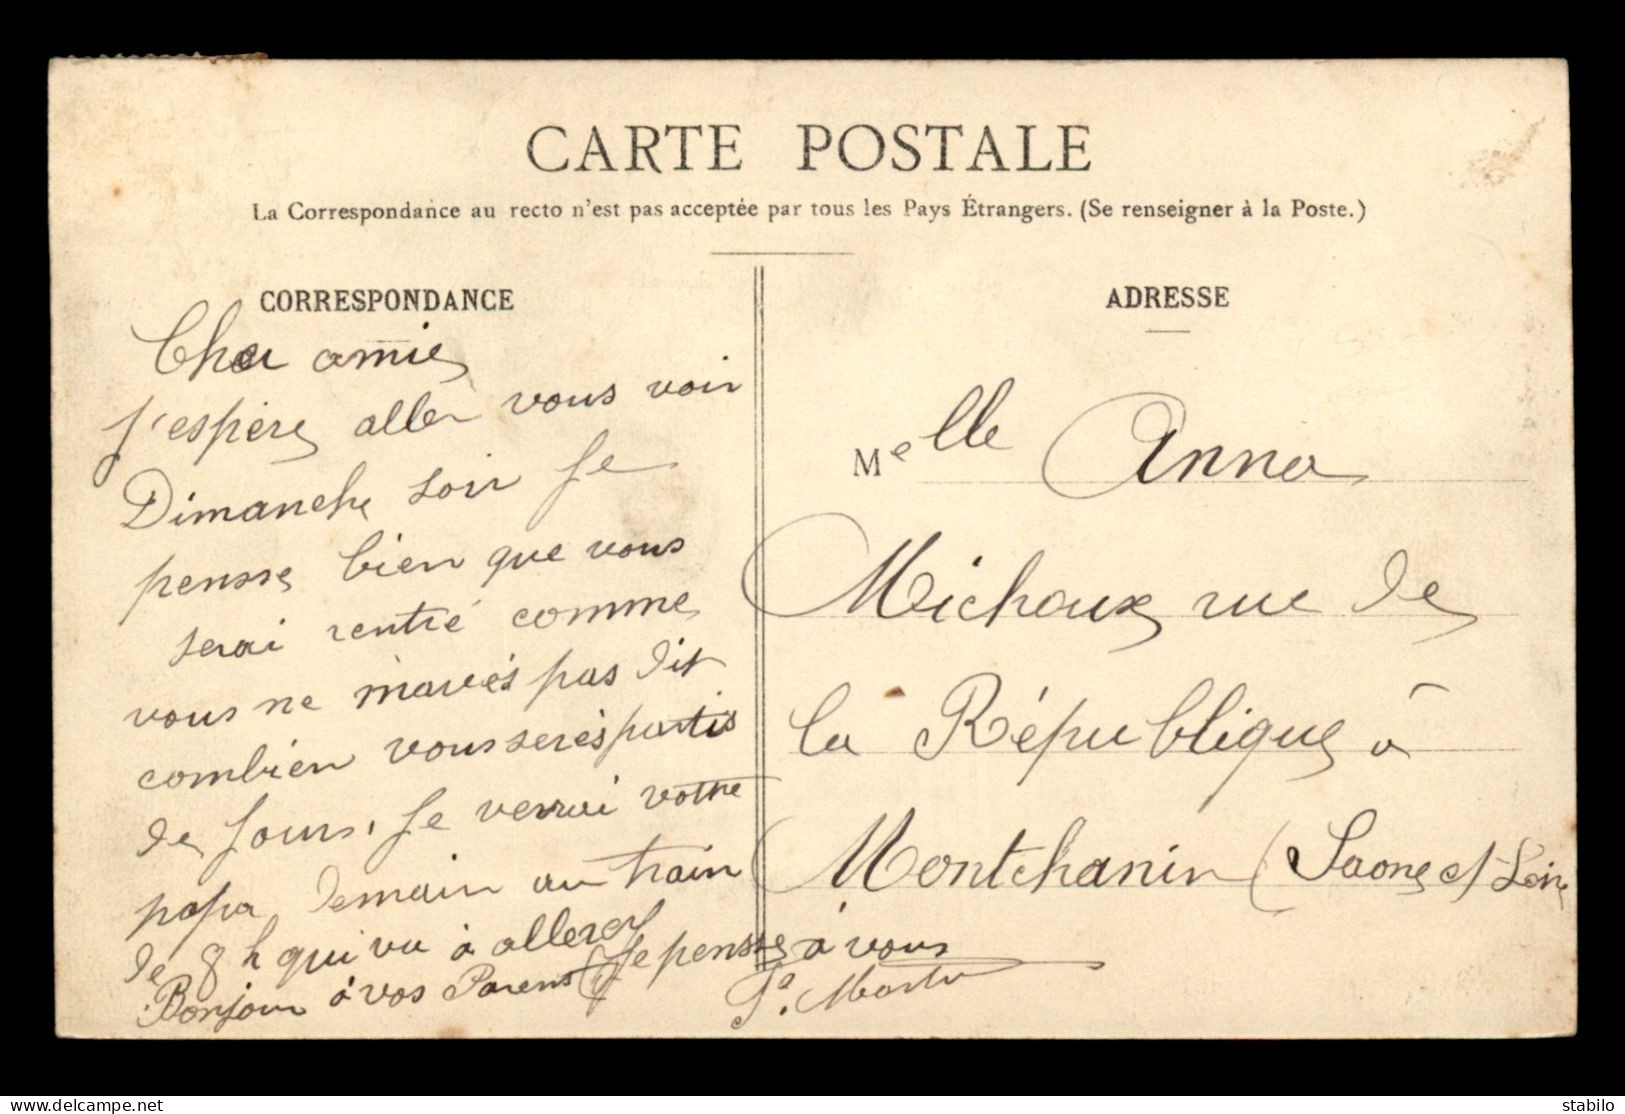 CARTE POSTALE
La Correspondance au recto n'est pas acceptée par tous les Pays Étrangers. (Se renseigner à la Poste.)
CORRESPONDANCE
Cher amie
J'espère aller vous voir
Dimanche soir Je
pensse bien que vous
serai rentré comme
vous ne mavés pas dit
combien vous serés partis
de Jours, Je verrai votre
papa demain au train
de 8 h qui va à allerey
Bonjour à vos Parents Je pensse à vous
ADRESSE
Melle Anna
Michaux rue de
la République à
Montchanin (Saone s/ Loire
delcampe.net
stabilo